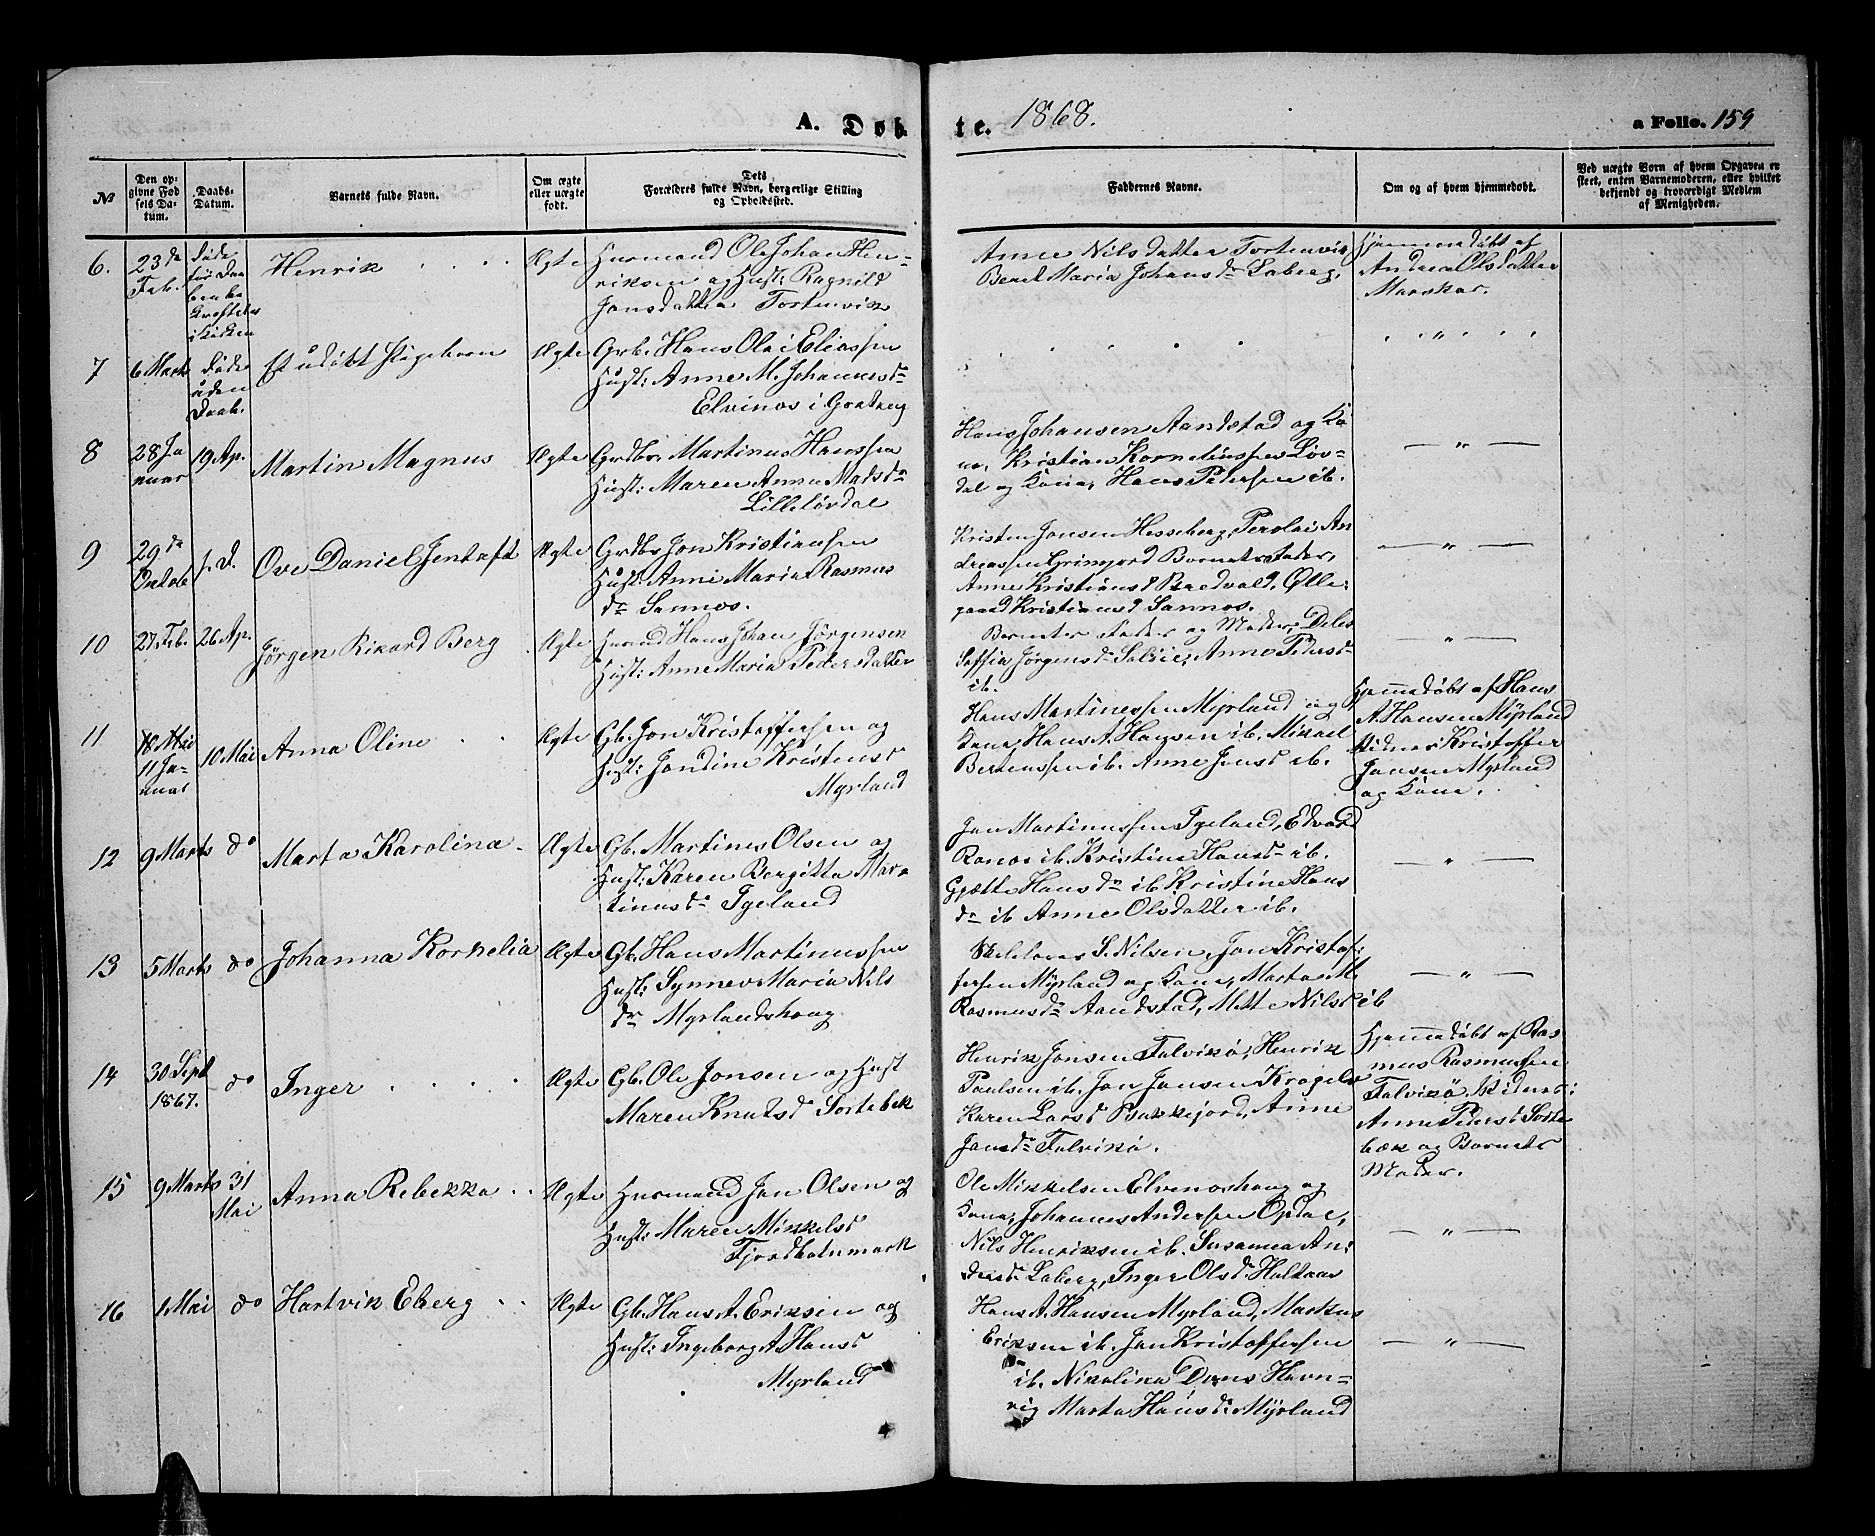 A. Døb
te. 1868.
a Folio. 159
№
Den opgivne Fødselsdatum.
Daabs-Datum.
Barnets fulde Navn.
Om ægte eller uægte født.
Dets Forældres fulde Navn, borgerlige Stilling og Opholdssted.
Faddernes Navne.
Om og af hvem hjemmedøbt.
Ved uægte Børn af hvem Opgaven er skeet, enten Barnemoderen, eller hvilket bekjendt og troværdigt Medlem af Menigheden.
6. 23de Feb. Døde før Daaben bekræftedes i Kirken
Henrik
Ægte
Husmand Ole Johan Hen-
riksen og Hust: Ragnild
Jonsdatter Tortenvik
Anne Nilsdatter Tortenvik
Beret Maria Johansdr Laberg.
Hjemmedøbt af
Andrea Olsdatter
Marskar.
7 6 Marts Døde uden Daab.
Et udøbt Pigebarn
Ægte
Grb. Hans Olai Eliassen
Hust: Anne M. Johannesdr
Elvenos i Gratang
8 28 Januar 19 Ap.
Martin Magnus
Ægte
Grdbr. Martinus Hanssen
Hust: Maren Anna Madsdr
Lilleløvdal
Hans Johansen Aandstad og Ko
ne, Kristian Korneliussen Løv-
dal og Kone, Hans Pedersen ib.
— " —
9 29de Octob f. A.
Ove Daniel Jentoft
Ægte
Grdbr Jon Kristiansen
Hust: Anne Maria Rasmus
dr Sannos.
Kristen Jonsen Hesseberg, Perolai An
dreassen Grimjord Barnets Fader,
Anne Kristiansd Bredvold, Olle-
gaard Kristiansd Sannos.
— " —
10 27 Feb. 26 Ap.
Jørgen Rikard Berg
Ægte
Husmd Hans Johan Jørgensen
Hust: Anne Maria Pedersdatter
Barnets Fader og Moder, Deles
Soffia Jørgensdr Salsie, Anne Pedersdr
ib.
— " —
11 18 Mai 11 Januar 10 Mai
Anna Oline
Ægte
Gb. Jon Kristoffersen og
Hust: Jondine Kristensd
Myrland
Hans Martinessen Myrland og
Kone, Hans A. Hansen ib. Mikael
Berenssen ib. Anne Jonsd ib.
Hjemmedøbt af Hans
A. Hansen Myrland
Vidner Kristoffer
Jonsen Myrland
og Kone.
12 9 Marts do
Marta Karolina
Ægte
Gb. Martines Olsen og
Hust: Karen Bergitta Mar-
tinusdr Tyeland
Jon Martinussen Tyeland, Edvard
Ronos ib. Kristina Hansdr ib.
Gjætte Hansdr ib. Kristine Hans
dr ib Anne Olsdatter ib.
— " —
13 5 Marts do
Johanna Kornelia
Ægte
Gb. Hans Martinussen
Hust: Synnev Maria Nils
dr Myrlandshaug
Skolelærer S. Nilsen, Jon Kristof-
fersen Myrland og Kone, Marta M.
Rasmusdr Aandstad, Mette Nilsd ib
— " —
14 30 Sept 1867. do
Inger
Ægte
Gb. Ole Jonsen og Hust
Maren Knutsd Sortebek
Henrik Jonsen Falvikø, Henrik
Paulsen ib. Jon Jonsen Kragelv
Karen Larsd Bakkejord, Anne
Jonsdr Falvikø.
Hjemmedøbt af Ras
mus Rasmussen
Falvikø, Vidnes:
Anne Pedersd Sorte
bæk og Barnets
Moder.
15 9 Marts 31 Mai
Anna Rebekka
Ægte
Husmand Jon Olsen og
Hust: Maren Mikkelsd
Fjordbotnmark
Ole Mikkelsen Elvenoshaug og
Kone, Johannes Andersen Opdal,
Nils Henriksen ib. Susanna An-
dersd. Laberg, Inger Olsd Holtaas
— " —
16 1 Mai do
Hartvik Eberg
Ægte
Gb. Hans A. Eriksen og
Hust: Ingeborg A. Hansd
Myrland
Hans A. Hansen Myrland, Markus
Eriksen ib. Jon Kristoffersen
ib. Nikolina Dons Havn-
vig Marta Hansdr Myrland
— " —